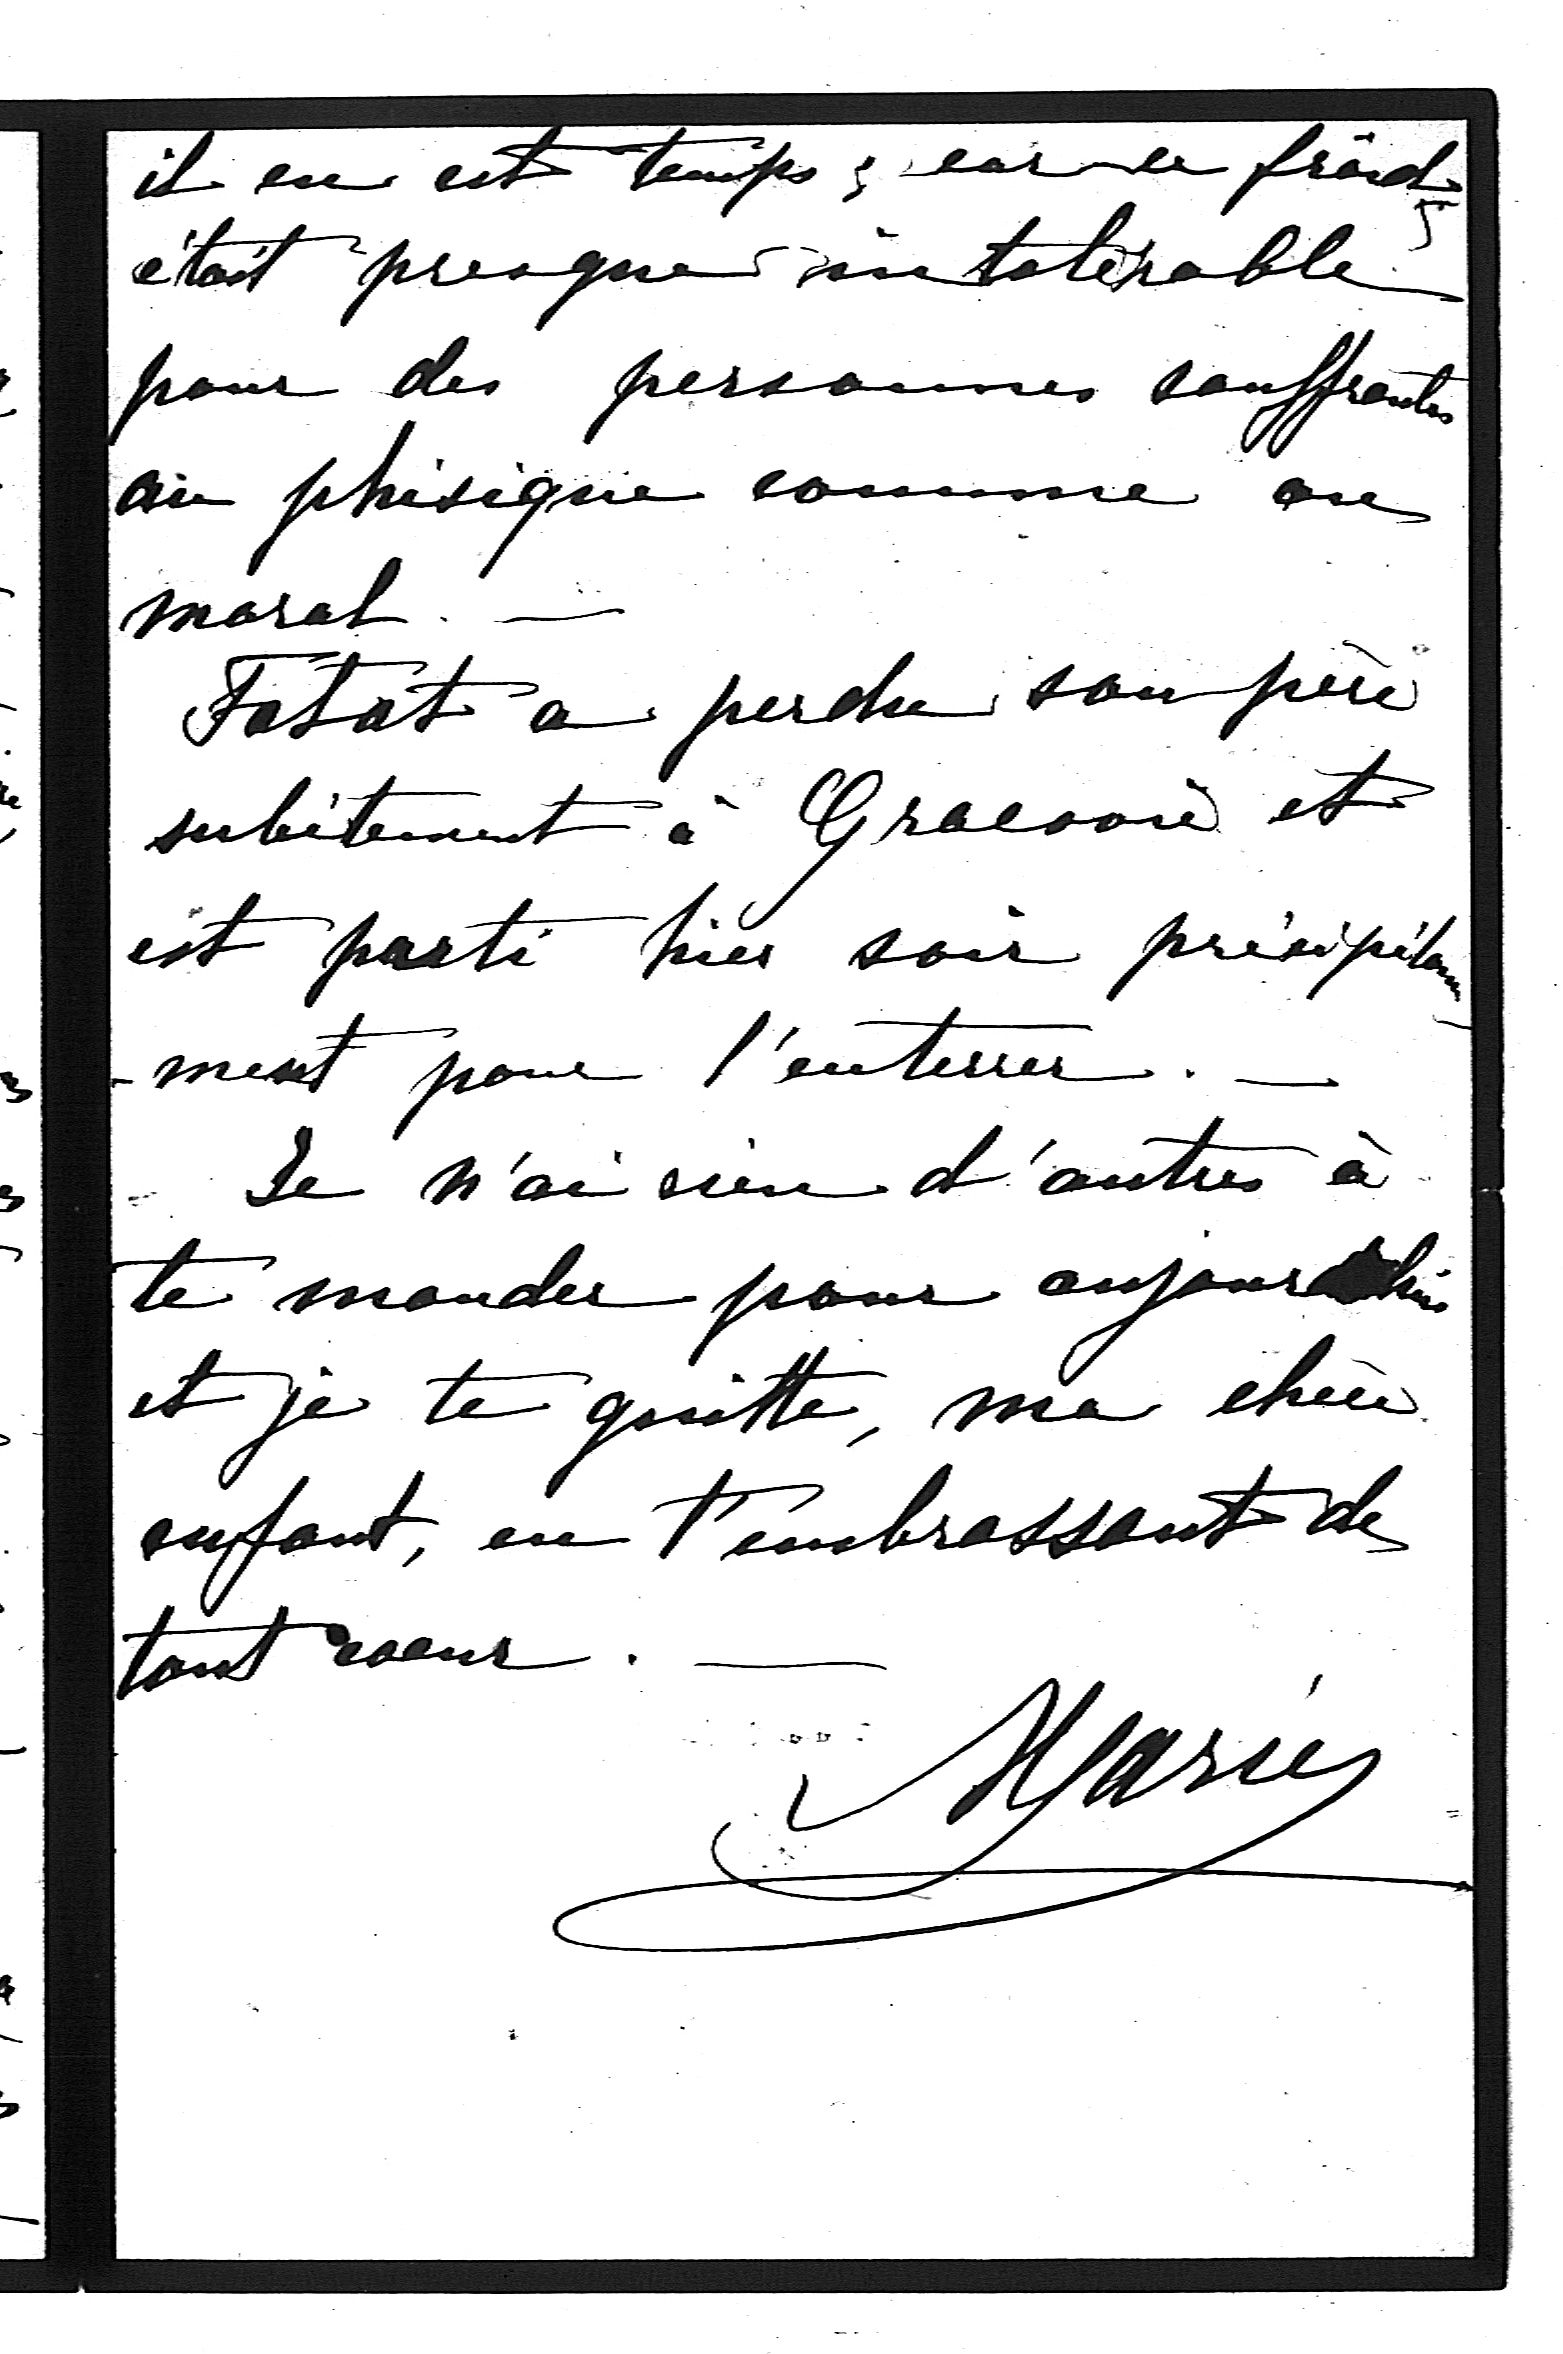 il en est temps, car le froid
était presque intolérable
pour des personnes souffrantes
au phisique comme au
moral. —
Fatat a perdu son père
subitement à Cracovie et
est parti hier soir précipitam
-ment pour l'enterrer. —
Je n'ai rien d'autres à
te mander pour aujourd'hui
et je te quitte, ma chère
enfant, en t'embrassant de
tout coeur. —
Marie